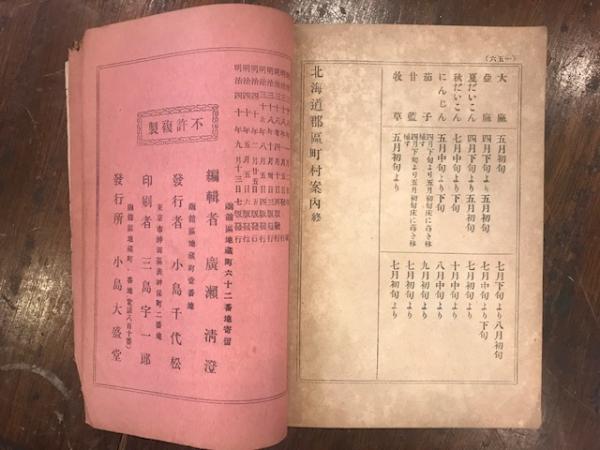 （一五六）
大麻 五月初旬 七月下旬より八月初旬
亞麻 四月下旬より五月初旬 七月中旬より下旬
夏だいこん 四月下旬より五月初旬 七月初旬より
秋だいこん 七月中旬より下旬 十月中旬より
にんじん 五月中旬より下旬 八月中旬より
茄子 四月下旬より五月初旬床に蒔き移植す 九月初旬より
甘藍 四月下旬より五月初旬床に蒔き移植す 七月初旬より
牧草 五月初旬より 七月初旬より
北海道郡區町村案內終
明治四十年九月十三日七版發行
函館區地蔵町六十二番地寄留
編輯者 廣瀬清澄
函館區地蔵町壹番地
發行者 小島千代松
東京市神田區表神保町二番地
印刷者 三島宇一郎
函館區地蔵町一番地（電話八百十番）
發行所 小島大盛堂
不許複製